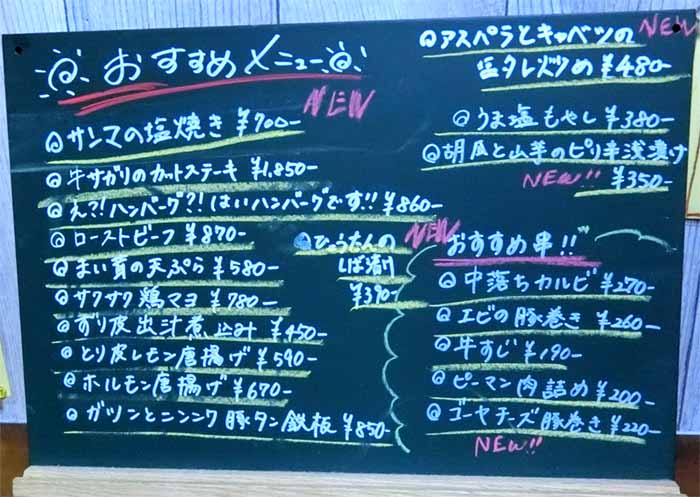 おすすめメニュー
NEW
サンマの塩焼き ¥700-
牛サガリのカットステーキ ¥1,850-
え?!ハンバーグ?!はいハンバーグです!! ¥860-
ローストビーフ ¥870-
まい茸の天ぷら ¥580-
サクサク鶏マヨ ¥780-
ずり皮出汁煮込み ¥450-
とり皮レモン唐揚げ ¥590-
ホルモン唐揚げ ¥670-
ガツンとニンニク豚タン鉄板 ¥850-
ひょうたんの
しば漬け
¥390-
NEW
アスペラとキャベツの
塩タレ炒め ¥480-
NEW
うま塩もやし ¥380-
胡瓜と山芋のピリ辛浅漬け
NEW!! ¥350-
おすすめ串!!
中落ちカルビ ¥270-
エビの豚巻き ¥260-
牛すじ ¥190-
ピーマン肉詰め ¥200-
ゴーヤチーズ豚巻き ¥220-
NEW!!